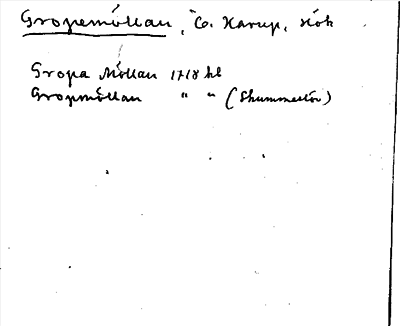 Gropemöllan, Ö. Karup, Hök
Gropa Möllan 1718 hl
Gropmöllan " " (Skummeslöv)